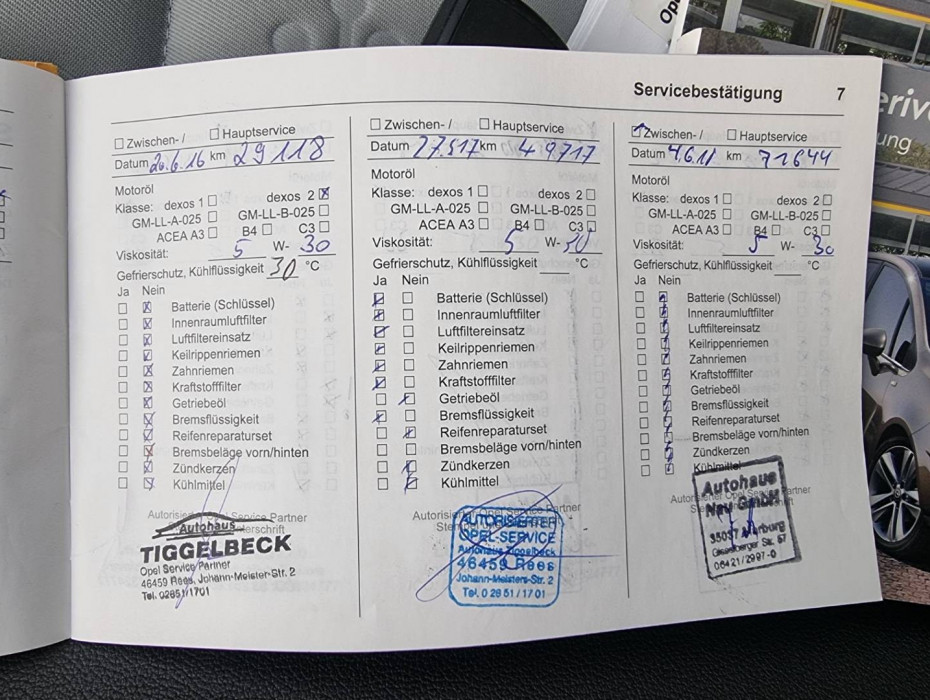 Op
eriv
ung
Servicebestätigung 7
Zwischen- / Hauptservice
Datum 20.6.16 km 29118
Motoröl
Klasse: dexos 1 dexos 2
GM-LL-A-025 GM-LL-B-025
ACEA A3 B4 C3
Viskosität: 5 W- 30
Gefrierschutz, Kühlflüssigkeit 30 °C
Ja Nein
Batterie (Schlüssel)
Innenraumluftfilter
Luftfiltereinsatz
Keilrippenriemen
Zahnriemen
Kraftstofffilter
Getriebeöl
Bremsflüssigkeit
Reifenreparaturset
Bremsbeläge vorn/hinten
Zündkerzen
Kühlmittel
Autorisierter Opel Service Partner
Autohaus
TIGGELBECK
Opel Service Partner
46459 Rees, Johann-Meister-Str. 2
Tel. 02851/1701
Zwischen- / Hauptservice
Datum 27517 km 49717
Motoröl
Klasse: dexos 1 dexos 2
GM-LL-A-025 GM-LL-B-025
ACEA A3 B4 C3
Viskosität: 5 W- 30
Gefrierschutz, Kühlflüssigkeit °C
Ja Nein
Batterie (Schlüssel)
Innenraumluftfilter
Luftfiltereinsatz
Keilrippenriemen
Zahnriemen
Kraftstofffilter
Getriebeöl
Bremsflüssigkeit
Reifenreparaturset
Bremsbeläge vorn/hinten
Zündkerzen
Kühlmittel
Service Partner
AUTORISIERTER
OPEL-SERVICE
Autohaus Tiggelbeck
46459 Rees
Johann-Meisters-Str. 2
Tel. 0 28 51 / 17 01
Zwischen- / Hauptservice
Datum km 71644
Motoröl
Klasse: dexos 1 dexos 2
GM-LL-A-025 GM-LL-B-025
ACEA A3 B4 C3
Viskosität: 5 W- 30
Gefrierschutz, Kühlflüssigkeit °C
Ja Nein
Batterie (Schlüssel)
Innenraumluftfilter
Luftfiltereinsatz
Keilrippenriemen
Zahnriemen
Kraftstofffilter
Getriebeöl
Bremsflüssigkeit
Reifenreparaturset
Bremsbeläge vorn/hinten
Zündkerzen
Kühlmittel
Autohaus
GmbH
35037 Marburg
Str. 57
06421/2997-0